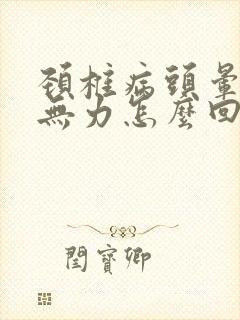 頚椎病頭暈
無力怎麼回
閏寶卿